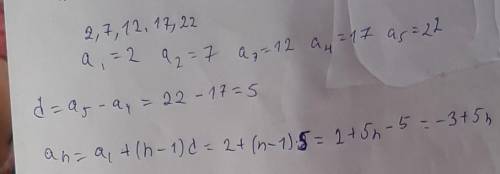 2, 7, 12, 17, 22
a₁ = 2 a₂ = 7 a₃ = 12 a₄ = 17 a₅ = 22
d = a₅ - a₄ = 22 - 17 = 5
aₙ = a₁ + (n-1)d = 2 + (n-1)·5 = 2 + 5n - 5 = -3 + 5n